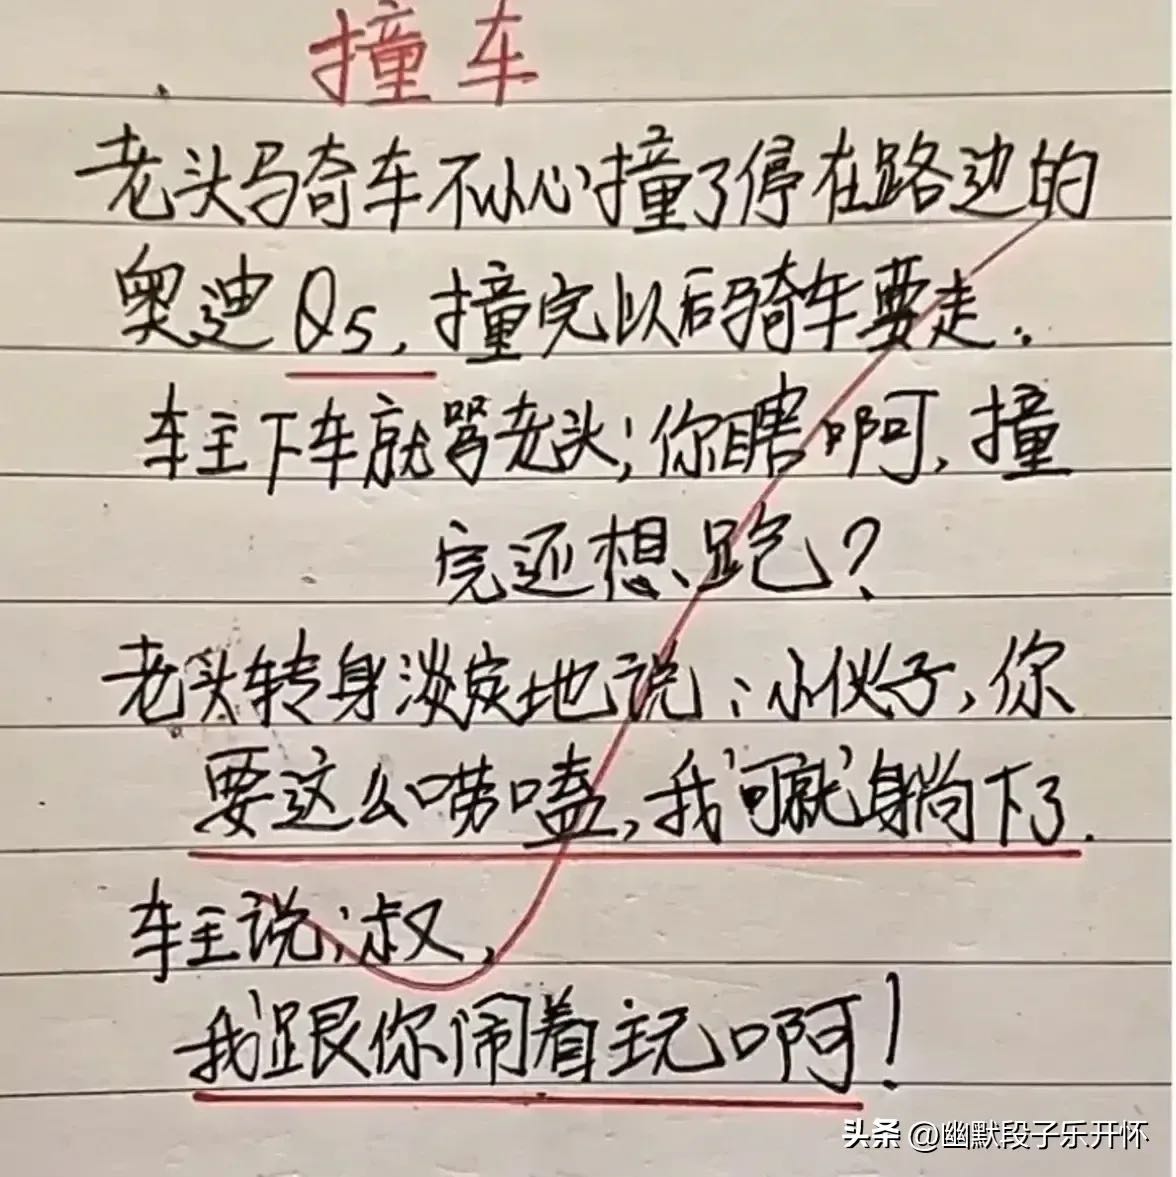 撞车
老头骑车不小心撞了停在路边的
奥迪Q5,撞完以后骑车要走.
车主下车就骂老头;你瞎啊,撞
完还想跑?
老头转身淡定地说:小伙子,你
要这么唠嗑,我可就躺下了.
车主说;叔,
我跟你闹着玩啊!
头条 @幽默段子乐开怀